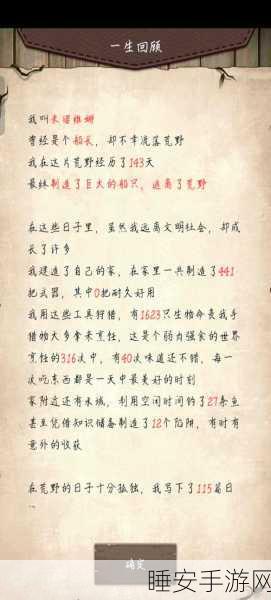 一生回顾
我叫米诺维娜
曾经是个船长，却不幸流落荒野
我在这片荒野经历了143天
最终制造了巨大的船只，逃离了荒野
在这些日子里，虽然我远离文明社会，却成
长了许多
我建造了自己的家，在家里一共制造了441
把武器，其中0把耐久好用
我用这些工具狩猎，有1623只生物命丧我手
猎物大多拿来烹饪，这是个弱肉强食的世界
烹饪的316次中，有40次味道还不错，每一
次吃东西都是一天中最美好的时刻
家附近还有水域，利用空闲时间钓了27条鱼
甚至凭借知识储备制造了12个陷阱，有时有
意外的收获
在荒野的日子十分孤独，我写下了115篇日
确定
睡安手游网